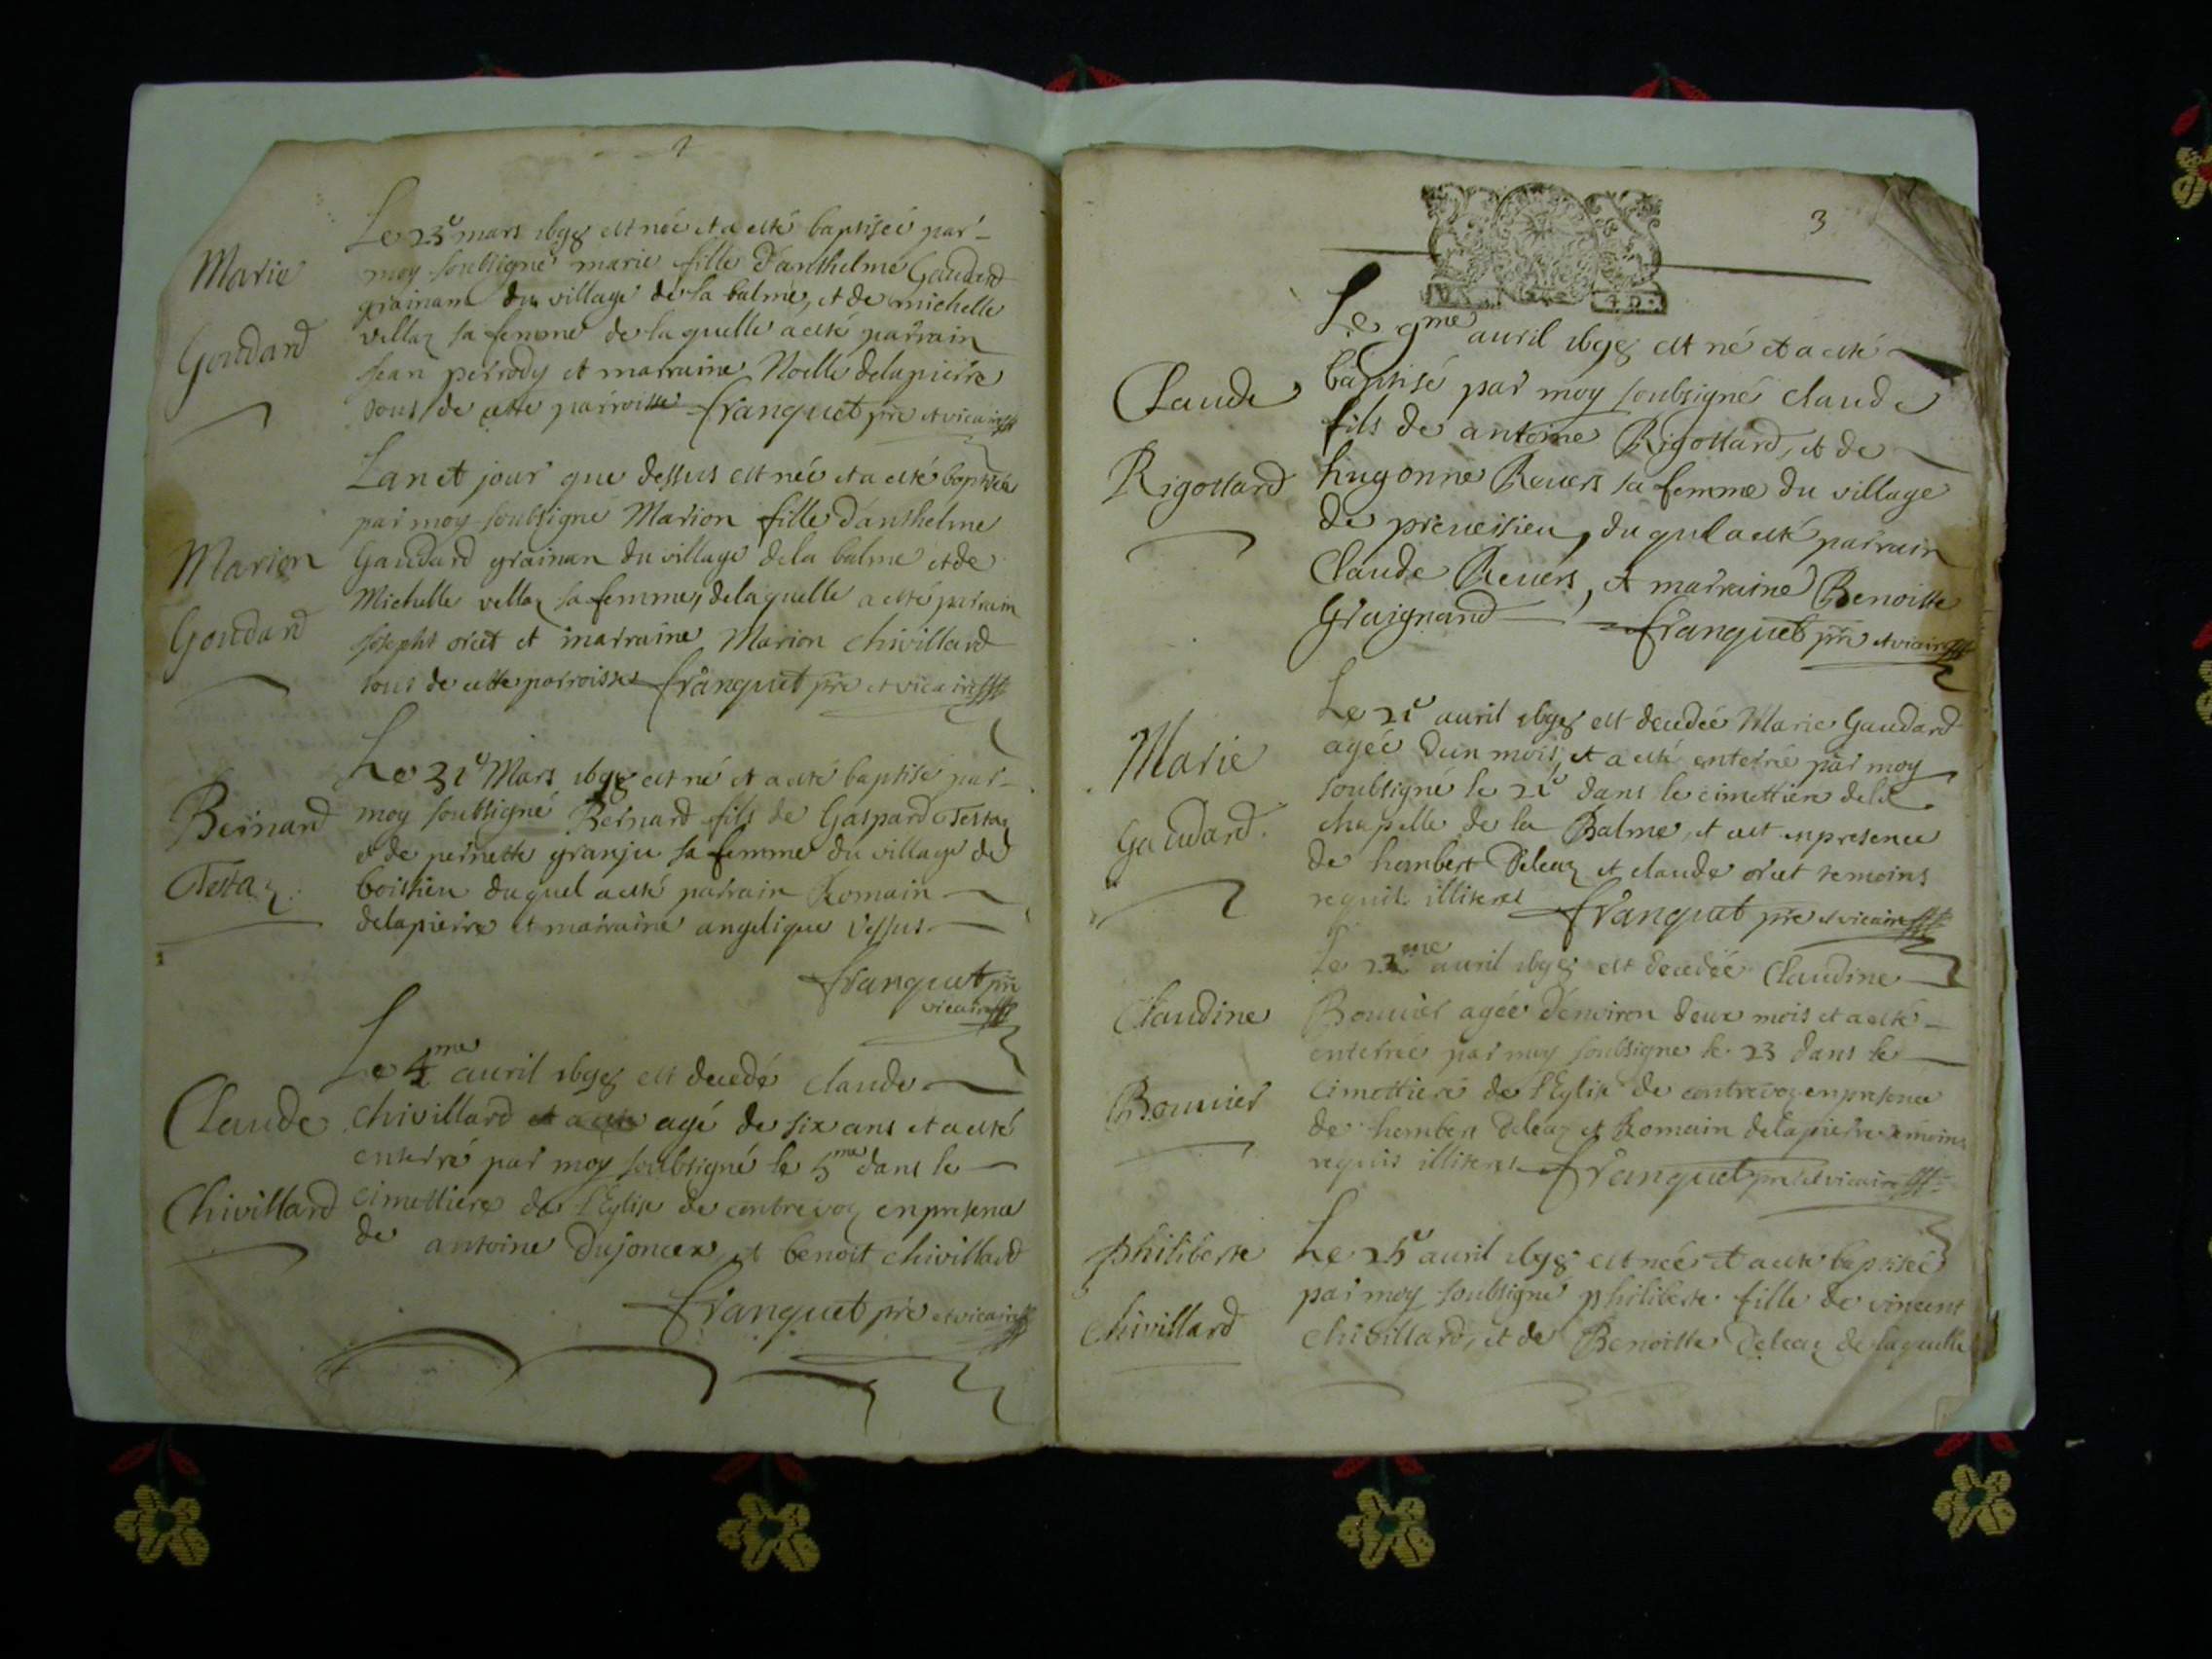 2
Marie
Goudard
Le 23e mars 1698 est née et a esté baptiseé par
moy soubsigné marie fille d'anthelme Gaudard
grainam du village de la balme, et de michelle
vellaz sa femme de laquelle a esté parrain
Jean perrody et marraine Noelle delapierre
tous de cette parroisse franquet pre et vicaire
Marion
Goudard
Lan et jour que dessus est neé et a esté baptiseé
par moy soubsigné Marion fille d'anthelme
Gaudard grainan du village dela balme et de
Michelle vellaz sa femme, delaquelle a esté parrain
Josepht oret et marraine Marion Chivillard
tous de cette parroisse franquet pre et vicaire
Bernard
Testaz
Le 31e Mars 1698 est né et a esté baptisé par
moy soubsigné Bernard fils de Gaspard Testaz
et de pernette granju sa femme du village de
boissieu duquel a esté parrain Romain
delapierre et marraine angelique Vessus
franquet pre
vicaire
Claude
Chivillard
Le 4me auril 1698 est decedé claude
chivillard et a esté agé de six ans et a esté
enterré par moy soubsigné le 5me dans le
cimettiere de l'Eglise de contrevoz en presence
de antoine Dujoncex et benoit chivillard
franquet pre et vicaire
3
Claude
Rigottard
Le 9me auril 1698 est né et a esté
baptisé par moy soubsigné claude
fils de antoine Rigottard, et de
hugonne Reuers sa femme du village
de preueisieu, du quel a esté parrain
Claude Reuers, et marraine Benoitte
Graignand franquet pre et vicaire
Marie
Gaudard
Le 21e auril 1698 est decedée Marie Gaudard
agée dun mois, et a esté enterrée par moy
soubsigné le 21e dans le cimettiere dela
chapelle de la Balme, et cest en presence
de hembert Deleaz et claude oret temoins
requis illiteres franquet pre et vicaire
Claudine
Bouuier
Le 22me auril 1698 est decedée Claudine
Bouuier agée d'environ deux mois et a esté
enterrée par moy soubsigne le 23 dans le
Cimettiere de l'Eglise de contrevoz en presence
de hembert Deleaz et Romain delapierre temoins
requis illiteres franquet pre et vicaire
philiberte
chivillard
Le 25e auril 1698 est neé et a esté baptiseé
par moy soubsigné philiberte fille de vincent
chivillard, et de Benoitte Deleaz de laquelle